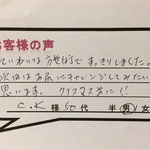 お客様の声
ていねいな施術ですっきりしました。
次回はお灸にチャレンジしてみたい
思います。クリスマス楽に!!
C.K 様 50代 男 女